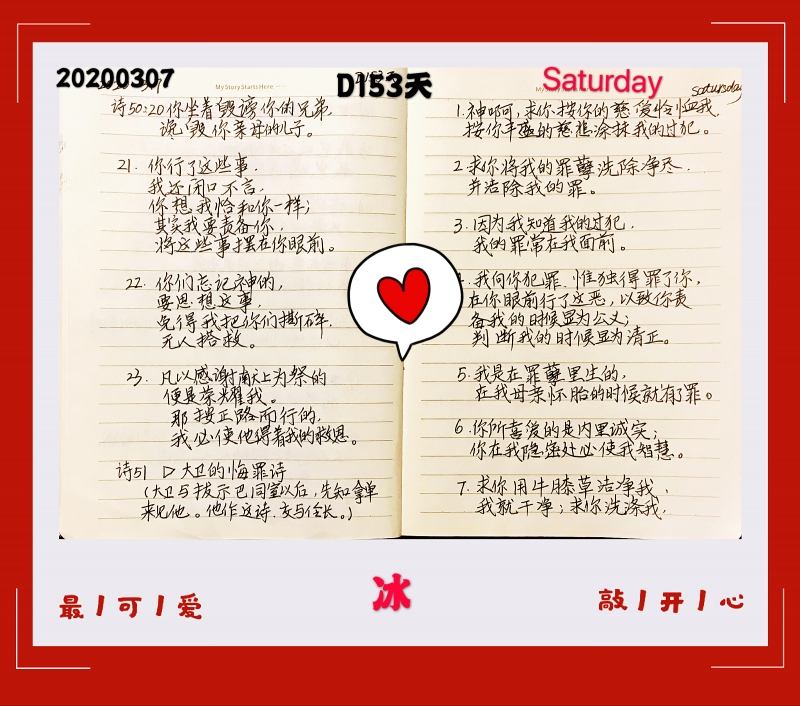 20200307
D153天
Saturday
My Story Starts Here
Saturday
诗50:20你坐着毁谤你的兄弟,
谗毁你亲母的儿子。
21. 你行了这些事,
我还闭口不言,
你想我恰和你一样;
其实我要责备你,
将这些事摆在你眼前。
22. 你们忘记神的,
要思想这事,
免得我把你们撕碎,
无人搭救。
23. 凡以感谢献上为祭的
便是荣耀我。
那按正路而行的,
我必使他得着我的救恩。
诗51 ▷大卫的悔罪诗
(大卫与拔示巴同室以后,先知拿单
来见他。他作这诗,交与伶长。)
1.神啊,求你按你的慈爱怜恤我,
按你丰盛的慈悲涂抹我的过犯。
2.求你将我的罪孽洗除净尽,
并洁除我的罪。
3.因为我知道我的过犯,
我的罪常在我面前。
我向你犯罪,惟独得罪了你,
在你眼前行了这恶,以致你责
备我的时候显为公义;
判断我的时候显为清正。
5.我是在罪孽里生的,
在我母亲怀胎的时候就有了罪。
6.你所喜爱的是内里诚实;
你在我隐密处必使我智慧。
7.求你用牛膝草洁净我,
我就干净;求你洗涤我,
最丨可丨爱
冰
敲丨开丨心